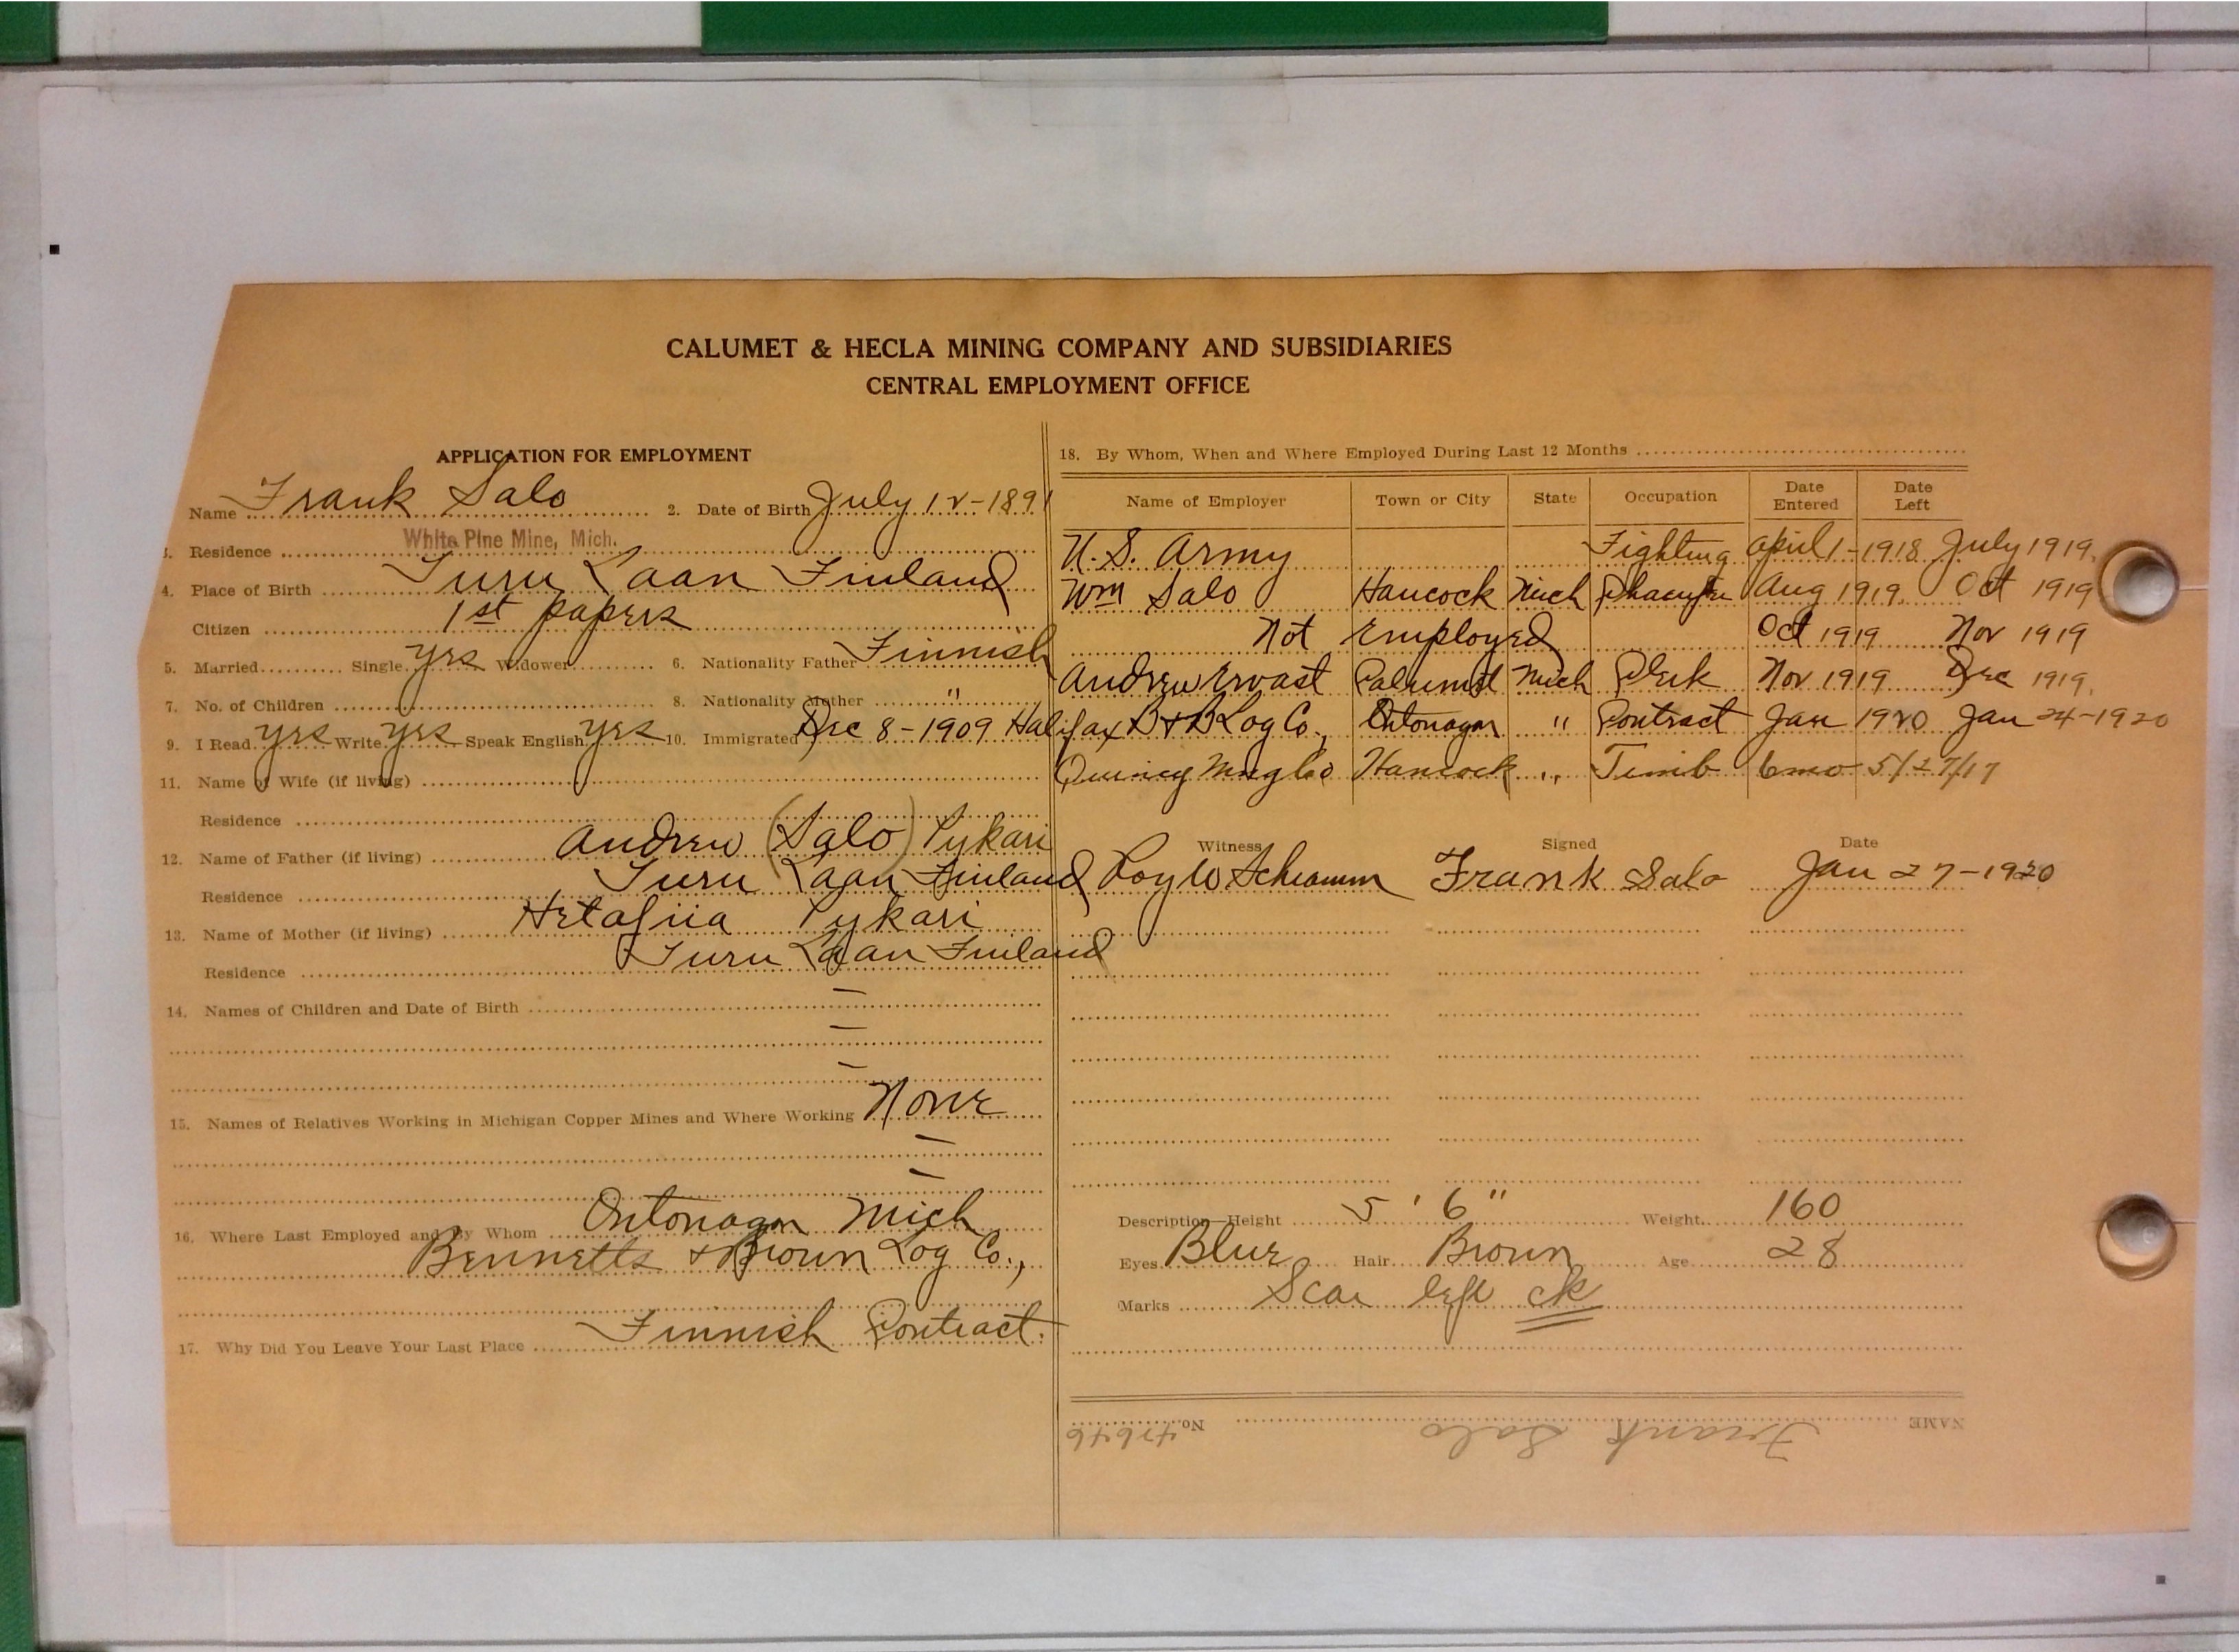 CALUMET & HECLA MINING COMPANY AND SUBSIDIARIES
CENTRAL EMPLOYMENT OFFICE
APPLICATION FOR EMPLOYMENT
Name Frank Salo 2. Date of Birth July 12-1891
3. Residence White Pine Mine, Mich.
4. Place of Birth Turu Laan Finland
Citizen 1st papers
5. Married Single yes Widower 6. Nationality Father Finnish
7. No. of Children 8. Nationality Mother "
9. I Read yes Write yes Speak English yes 10. Immigrated Dec 8-1909 Halifax
11. Name of Wife (if living)
Residence
12. Name of Father (if living) Andrew (Salo) Pykari
Residence Turu Laan Finland
13. Name of Mother (if living) Pykari
Residence Turu Laan Finland
14. Names of Children and Date of Birth —
—
—
15. Names of Relatives Working in Michigan Copper Mines and Where Working None
—
—
16. Where Last Employed and By Whom Ontonagon Mich
Bennetts & Brown Log Co.,
17. Why Did You Leave Your Last Place Finnish Contract.
18. By Whom, When and Where Employed During Last 12 Months
Name of Employer Town or City State Occupation Date Entered Date Left
U.S. Army Fighting April 1-1918 July 1919.
Wm Salo Hancock Mich Aug 1919. Oct 1919
Not Employed Oct 1919 Nov 1919
Andrew Ervast Calumet Mich Clerk Nov 1919 Dec 1919.
B & B Log Co., Ontonagon " Contract Jan 1920 Jan 24-1920
Quincy Mng Co Hancock " Timb 6mo 5/27/17
Witness Signed Date
Roy W Schramm Frank Salo Jan 27-1920
Description—Height 5' 6" Weight 160
Eyes Blue Hair Brown Age 28
Marks Scar left ck
NAME Frank Salo No. 47646